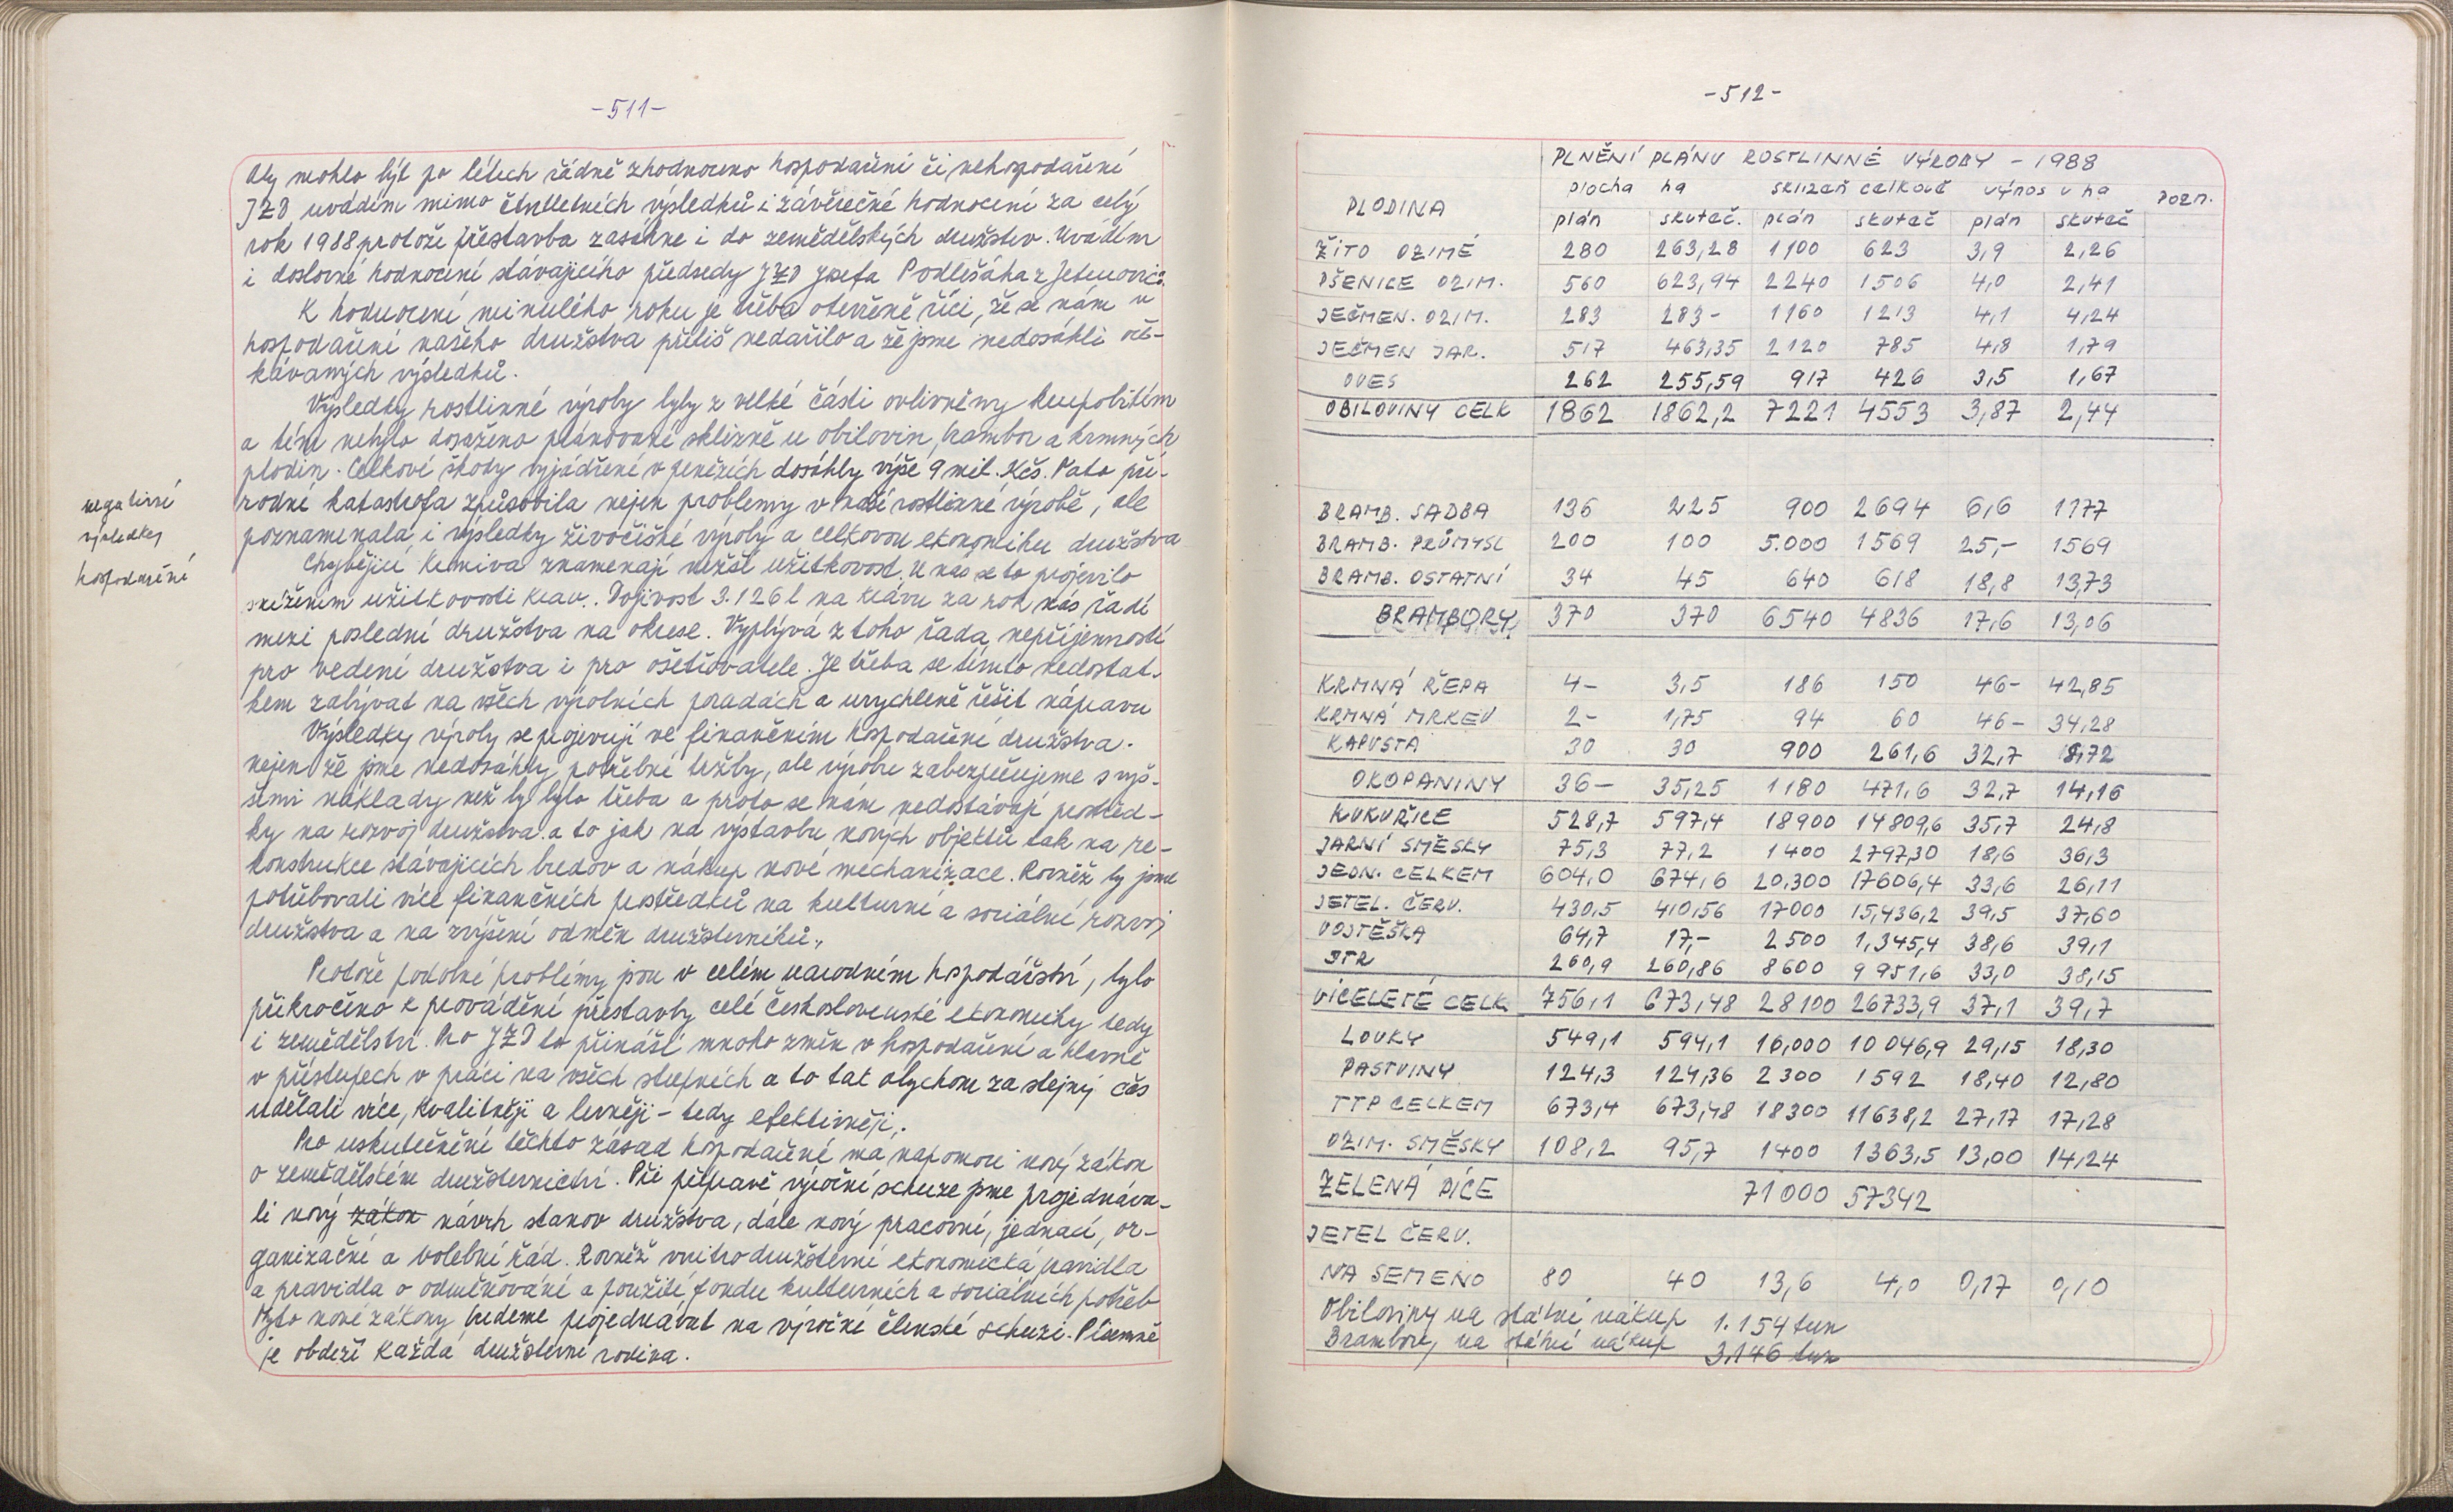 -511-
Aby mohlo být po létech řádně zhodnoceno hospodaření či nehospodaření
JZD uvádím mimo čtvtletních výsledků i závěrečné hodnocení za celý
rok 1988 protože přestavba zasáhne i do zemědělských družstev. Uvádím
i doslovné hodnocení stávajícího předsedy JZD Josefa Podlešáka z Jetenovic:
K hodnocení minulého roku je třeba otevřeně říci, že se nám v
hospodaření našeho družstva příliš nedařilo a že jsme nedosáhli oče-
kávaných výsledků.
Výsledky rostlinné výroby byly z velké části ovlivněny krupobitím
a tím nebylo dosaženo plánované sklizně u obilovin, brambor a krmných
plodin. Celkové škody vyjádřené v penězích dosáhly výše 9 mil. Kčs. Tato pří-
rodní katastrofa způsobila nejen problemy v naší rostlinné výrobě, ale
poznamenala i výsledky živočišné výroby a celkovou ekonomiku družstva
negativní
výsledky
hospodaření
Chybějící krmiva znamenají nižší užitkovost. U nas se to projevilo
snížením užitkovosti krav. Dojivost 3.126 l na krávu za rok nás řadí
mezi poslední družstva na okrese. Vyplývá z toho řada nepříjemností
pro vedení družstva i pro ošetřovatele. Je třeba se tímto nedostat-
kem zabývat na všech výrobních poradách a urychleně řešit nápravu
Výsledky výroby se projevují ve finančním hospodaření družstva.
nejen že jsme nedosáhly potřebné tržby, ale výrobu zabezpečujeme s vyš-
šími náklady než by bylo třeba a proto se nám nedostávají prostřed-
ky na rozvoj družstva a to jak na výstavbu nových objektů tak na re-
konstrukce stávajících budov a nákup nové mechanizace. Rovněž by jsme
potřebovali více finančních prostředků na kulturní a sociální rozvoj
družstva a na zvýšení odměn družstevníků.,
Protože podobné problémy jsou v celém narodním hospodářství, bylo
přikročeno k provádění přestavby celé československé ekonomiky tedy
i zemědělství. Pro JZD to přináší mnoho změn v hospodaření a hlavně
v přístupech v práci na všech stupních a to tak abychom za stejný čas
udělali více, kvalitněji a levněji - tedy efektivněji,.
Pro uskutečnění těchto zásad hospodaření má napomoci nový zákon
o zemědělském družstevnictví. Při přípravě výroční schuze jsme projednáva-
li nový zákon návrh stanov družstva, dále nový pracovní, jednací, or-
ganizační a volební řád. Rovněž vnitrodružstevní ekonomická pravidla
a pravidla o odměňování a použití fondu kulturních a sociálních potřeb
Tyto nové zákony budeme projednávat na výroční členské schuzi. Písemně
je obdrží každá družstevní rodina.
-512-
PLNĚNÍ PLÁNU ROSTLINNÉ VÝROBY - 1988
PLODINA plocha ha sklizeň celkově výnos v ha pozn.
plán skutač. plán skutač plán skutač
ŽITO OZIMÉ 280 263,28 1100 623 3,9 2,26
PŠENICE OZIM. 560 623,94 2240 1506 4,0 2,41
JEČMEN. OZIM. 283 283- 1160 1213 4,1 4,24
JEČMEN JAR. 517 463,35 2120 785 4,8 1,79
OVES 262 255,59 917 426 3,5 1,67
OBILOVINY CELK 1862 1862,2 7221 4553 3,87 2,44
BRAMB. SADBA 136 225 900 2694 6,6 1177
BRAMB. PRŮMYSL 200 100 5.000 1569 25,- 1569
BRAMB. OSTATNÍ 34 45 640 618 18,8 13,73
BRAMBORY 370 370 6540 4836 17,6 13,06
KRMNÁ ŘEPA 4- 3,5 186 150 46- 42,85
KRMNÁ MRKEV 2- 1,75 94 60 46- 34,28
KAPUSTA 30 30 900 261,6 32,7 8,72
OKOPANINY 36- 35,25 1180 471,6 32,7 14,16
KUKUŘICE 528,7 597,4 18900 14809,6 35,7 24,8
JARNÍ SMĚSKY 75,3 77,2 1400 2797,30 18,6 36,3
JEDN. CELKEM 604,0 674,6 20.300 17606,4 33,6 26,11
JETEL. ČERV. 430,5 410,56 17000 15,436,2 39,5 37,60
VOJTĚŠKA 64,7 17,- 2500 1,345,4 38,6 39,1
JTR 260,9 260,86 8600 9951,6 33,0 38,15
VÍCELETÉ CELK 756,1 673,48 28100 26733,9 37,1 39,7
LOUKY 549,1 594,1 16,000 10046,9 29,15 18,30
PASTVINY 124,3 124,36 2300 1592 18,40 12,80
TTP CELKEM 673,4 673,48 18300 11638,2 27,17 17,28
OZIM. SMĚSKY 108,2 95,7 1400 1363,5 13,00 14,24
ZELENÁ PÍCE 71000 57342
JETEL ČERV.
NA SEMENO 80 40 13,6 4,0 0,17 0,10
Obiloviny na státní nákup 1.154 tun
Brambory na státní nákup 3.146 tun